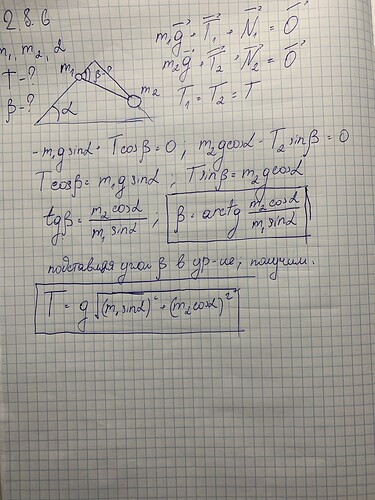 2.8.6
m₁, m₂, α
T - ?
β - ?
m₁ β m₂ α
m₁g⃗ + T⃗₁ + N⃗₁ = 0⃗
m₂g⃗ + T⃗₂ + N⃗₂ = 0⃗
T₁ = T₂ = T
- m₁g sinα + T cosβ = 0 ; m₂g cosα - T₂ sinβ = 0
T cosβ = m₁g sinα ; T sinβ = m₂g cosα
tgβ = m₂cosα / m₁sinα ; β = arctg m₂cosα / m₁sinα
подставляя угол β в ур-ие, получим:
T = g √(m₁sinα)² + (m₂cosα)²